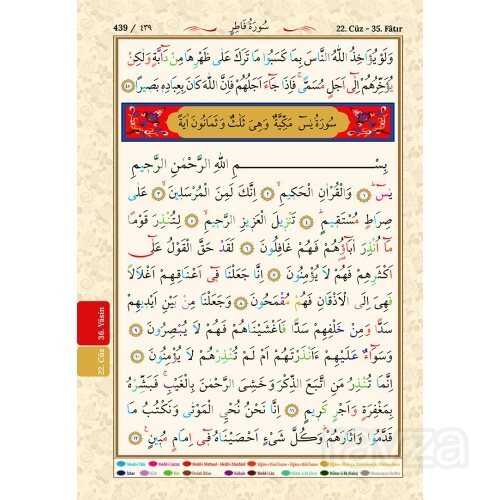 439 / ٤٣٩
سُورَةُ فَاطِرٍ
22. Cüz - 35. Fâtır
وَلَوْ يُؤَاخِذُ اللّٰهُ النَّاسَ بِمَا كَسَبُوا مَا تَرَكَ عَلٰى ظَهْرِهَا مِنْ دَٓابَّةٍ وَلٰكِنْ
يُؤَخِّرُهُمْ اِلٰٓى اَجَلٍ مُسَمًّىۚ فَاِذَا جَٓاءَ اَجَلُهُمْ فَاِنَّ اللّٰهَ كَانَ بِعِبَادِه۪ بَص۪يرًا ﴿٤٥﴾
سُورَةُ يٰسٓ مَكِّيَّةٌ وَهِيَ ثَلٰثٌ وَثَمَانُونَ اٰيَةً
بِسْمِ اللّٰهِ الرَّحْمٰنِ الرَّح۪يمِ
يٰسٓۜ ﴿١﴾ وَالْقُرْاٰنِ الْحَك۪يمِۙ ﴿٢﴾ اِنَّكَ لَمِنَ الْمُرْسَل۪ينَۙ ﴿٣﴾ عَلٰى
صِرَاطٍ مُسْتَق۪يمٍۜ ﴿٤﴾ تَنْز۪يلَ الْعَز۪يزِ الرَّح۪يمِۙ ﴿٥﴾ لِتُنْذِرَ قَوْمًا
مَٓا اُنْذِرَ اٰبَٓاؤُ۬هُمْ فَهُمْ غَافِلُونَ ﴿٦﴾ لَقَدْ حَقَّ الْقَوْلُ عَلٰٓى
اَكْثَرِهِمْ فَهُمْ لَا يُؤْمِنُونَ ﴿٧﴾ اِنَّا جَعَلْنَا ف۪ٓي اَعْنَاقِهِمْ اَغْلَالًا
فَهِيَ اِلَى الْاَذْقَانِ فَهُمْ مُقْمَحُونَ ﴿٨﴾ وَجَعَلْنَا مِنْ بَيْنِ اَيْد۪يهِمْ
سَدًّا وَمِنْ خَلْفِهِمْ سَدًّا فَاَغْشَيْنَاهُمْ فَهُمْ لَا يُبْصِرُونَ ﴿٩﴾
وَسَوَٓاءٌ عَلَيْهِمْ ءَاَنْذَرْتَهُمْ اَمْ لَمْ تُنْذِرْهُمْ لَا يُؤْمِنُونَ ﴿١٠﴾
اِنَّمَا تُنْذِرُ مَنِ اتَّبَعَ الذِّكْرَ وَخَشِيَ الرَّحْمٰنَ بِالْغَيْبِۚ فَبَشِّرْهُ
بِمَغْفِرَةٍ وَاَجْرٍ كَر۪يمٍ ﴿١١﴾ اِنَّا نَحْنُ نُحْـيِ الْمَوْتٰى وَنَكْتُبُ مَا
قَدَّمُوا وَاٰثَارَهُمْۜ وَكُلَّ شَيْءٍ اَحْصَيْنَاهُ ف۪ٓي اِمَامٍ مُب۪ينٍ۟ ﴿١٢﴾
36. Yâsîn
22. Cüz
ravza